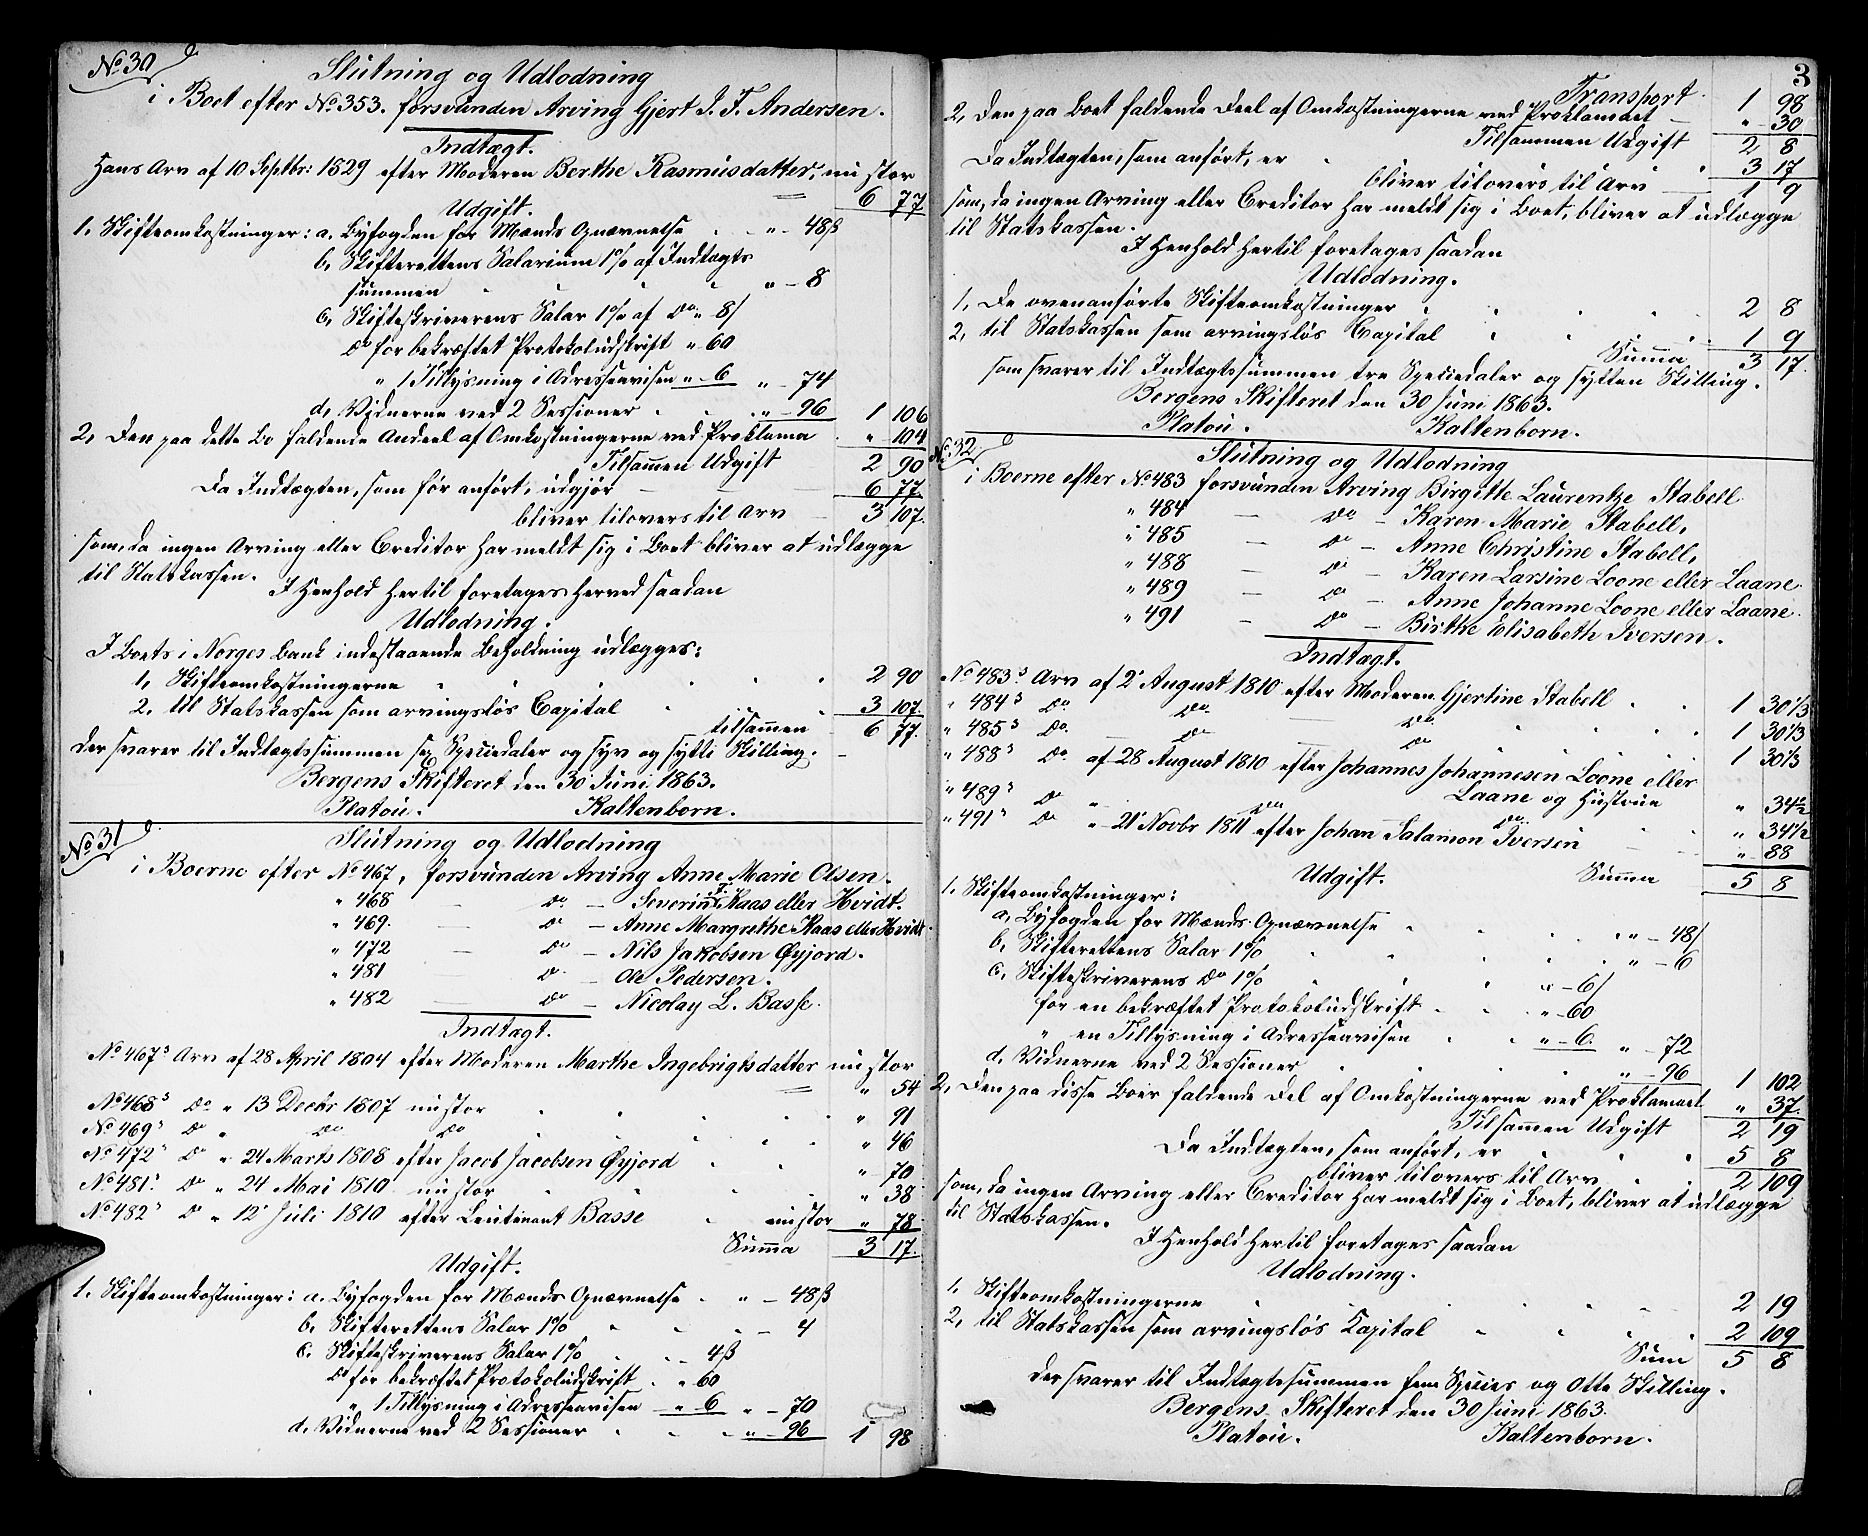 No 30
Slutning og Udlodning
i Boet efter No 353. forsvunden Arving Gjert J. F. Andersen.
Indtægt.
Hans Arv af 10 Septbr: 1829 efter Moderen Berthe Rasmusdatter, nu stor
6 77
Udgift.
1, Skifteomkostninger: a. Byfogden for Mænds Opnævnelse " - 48 ß
b, Skifterettens Salarium 1% af Indtægts
summen " - 8
c, Skifteskriverens Salar 1% af Do " 8/
Do for bekræftet Protokoludskrift " 60
" 1 Tillysning i Adresseavisen " - 6 " - 74
d, Vidnerne ved 2 Sessioner " - 96 1 106
2, Den paa dette Bo faldende Andeel af Omkostningerne ved Proklama " 104
Tilsammen Udgift 2 90
Da Indtægten, som før anført, udgjør 6 77
bliver tilovers til Arv 3 107.
som, da ingen Arving eller Creditor har meldt sig i Boet bliver at udlægge
til Statskassen.
I Henhold hertil foretages herved saadan
Udlodning.
I Boets i Norges bank indestaaende Beholdning udlægges:
1, Skifteomkostningerne 2 90
2, til Statskassen som arvingsløs Capital 3 107.
tilsammen 6 77.
der svarer til Indtægtssummen sex Speciedaler og syv og sytti Skilling.
Bergens Skifteret den 30 Juni 1863.
Platou. Kaltenborn.
No 31
Slutning og Udlodning
i Boerne efter No 467, forsvunden Arving Anne Marie Olsen.
" 468 — Do — Severin T. Kaas eller Hvidt.
" 469. — Do — Anne Margrethe Kaas eller Hvidt.
" 472 — Do — Nils Jakobsen Øyjord.
" 481 — Do — Ole Pedersen.
" 482 — Do — Nicolay L. Basse.
Indtægt.
No 467s Arv af 28 April 1804 efter Moderen Marthe Ingebrigtsdatter nu stor
" 54
No 468s Do " 13 Decbr 1807 nu stor " 91
No 469s Do " Do Do " 46
No 472s Do " 24 Marts 1808 efter Jacob Jacobsen Øyjord " 70
No 481s Do " 24 Mai 1810 nu stor " 38
No 482s Do " 12 Juli 1810 efter Leutinant Basse nu stor " 78.
Summa 3 17.
Udgift.
1, Skifteomkostninger: a. Byfogden for Mænds Opnævnelse " - 48 ß
b, Skifterettens Salar 1% " - 4
c. Skifteskriverens Salar 1% 4 ß
Do for bekræftet Protokoludskrift " 60
" 1 Tillysning i Adresseavisen " 6 " - 70
d. Vidnerne ved 2 Sessioner " - 96 1 98
3
Transport 1 98
2, Den paa Boet faldende Deel af Omkostningerne ved Proklamaet " 30
Tilsammen Udgift 2 8
Da Indtægten, som anført, er 3 17
bliver tilovers til Arv 1 9
som, da ingen Arving eller Creditor har meldt sig i Boet, bliver at udlægge
til Statskassen.
I Henhold hertil foretages saadan
Udlodning.
1, De ovenanførte Skifteomkostninger 2 8
2, til Statskassen som arvingsløs Capital 1 9
Summa 3 17.
som svarer til Indtægtssummen tre Speciedaler og sytten Skilling.
Bergens Skifteret den 30 Juni 1863.
Platou. Kaltenborn.
No 32
Slutning og Udlodning
i Boerne efter No 483 forsvunden Arving Birgitte Laurentze Stabell
" 484 — Do — Karen Marie Stabell,
" 485 — Do — Anne Christine Stabell,
" 488 — Do — Karen Larsine Loone eller Laane.
" 489 — Do — Anne Johanne Loone eller Laane.
" 491 — Do — Birthe Elisabeth Iversen.
Indtægt.
No 483s Arv af 2 August 1810 efter Moderen Gjertine Stabell 1 30 1/3
" 484s Do Do Do 1 30 1/3
" 485s Do. Do Do 1 30 1/3
" 488s Do af 28 August 1810 efter Johannes Johannesen Loone eller
Laane og Hustrue " 34 1/2
" 489s Do " Do Do " 34 1/2
" 491s Do " 21 Novbr 1811 efter Johan Salamon Iversen " 88
Summa 5 8
Udgift.
1, Skifteomkostninger:
a, Byfogden for Mænds Opnævnelse " - 48/
b, Skifterettens Salar 1% " - 6
c, Skifteskriverens Do 1% " - 6/
for en bekræftet Protokoludskrift " - 60
" en Tillysning i Adresseavisen " - 6. " - 72
d, Vidnerne ved 2 Sessioner " - 96 1 102
2, Den paa disse Boer faldende Del af Omkostningerne ved Proklamaet " 37.
Tilsammen Udgift 2 19
Da Indtægten, som anført, er 5 8
bliver tilovers til Arv 2 109
som, da ingen Arving eller Creditor har meldt sig i Boet, bliver at udlægge
til Statskassen.
I Henhold hertil foretages saadan
Udlodning.
1, Skifteomkostningerne 2 19
2, til Statskassen som arvingsløs Kapital 2 109
Sum 5 8
der svarer til Indtægtssummen fem Species og otte Skilling.
Bergens Skifteret den 30 Juni 1863.
Platou. Kaltenborn.